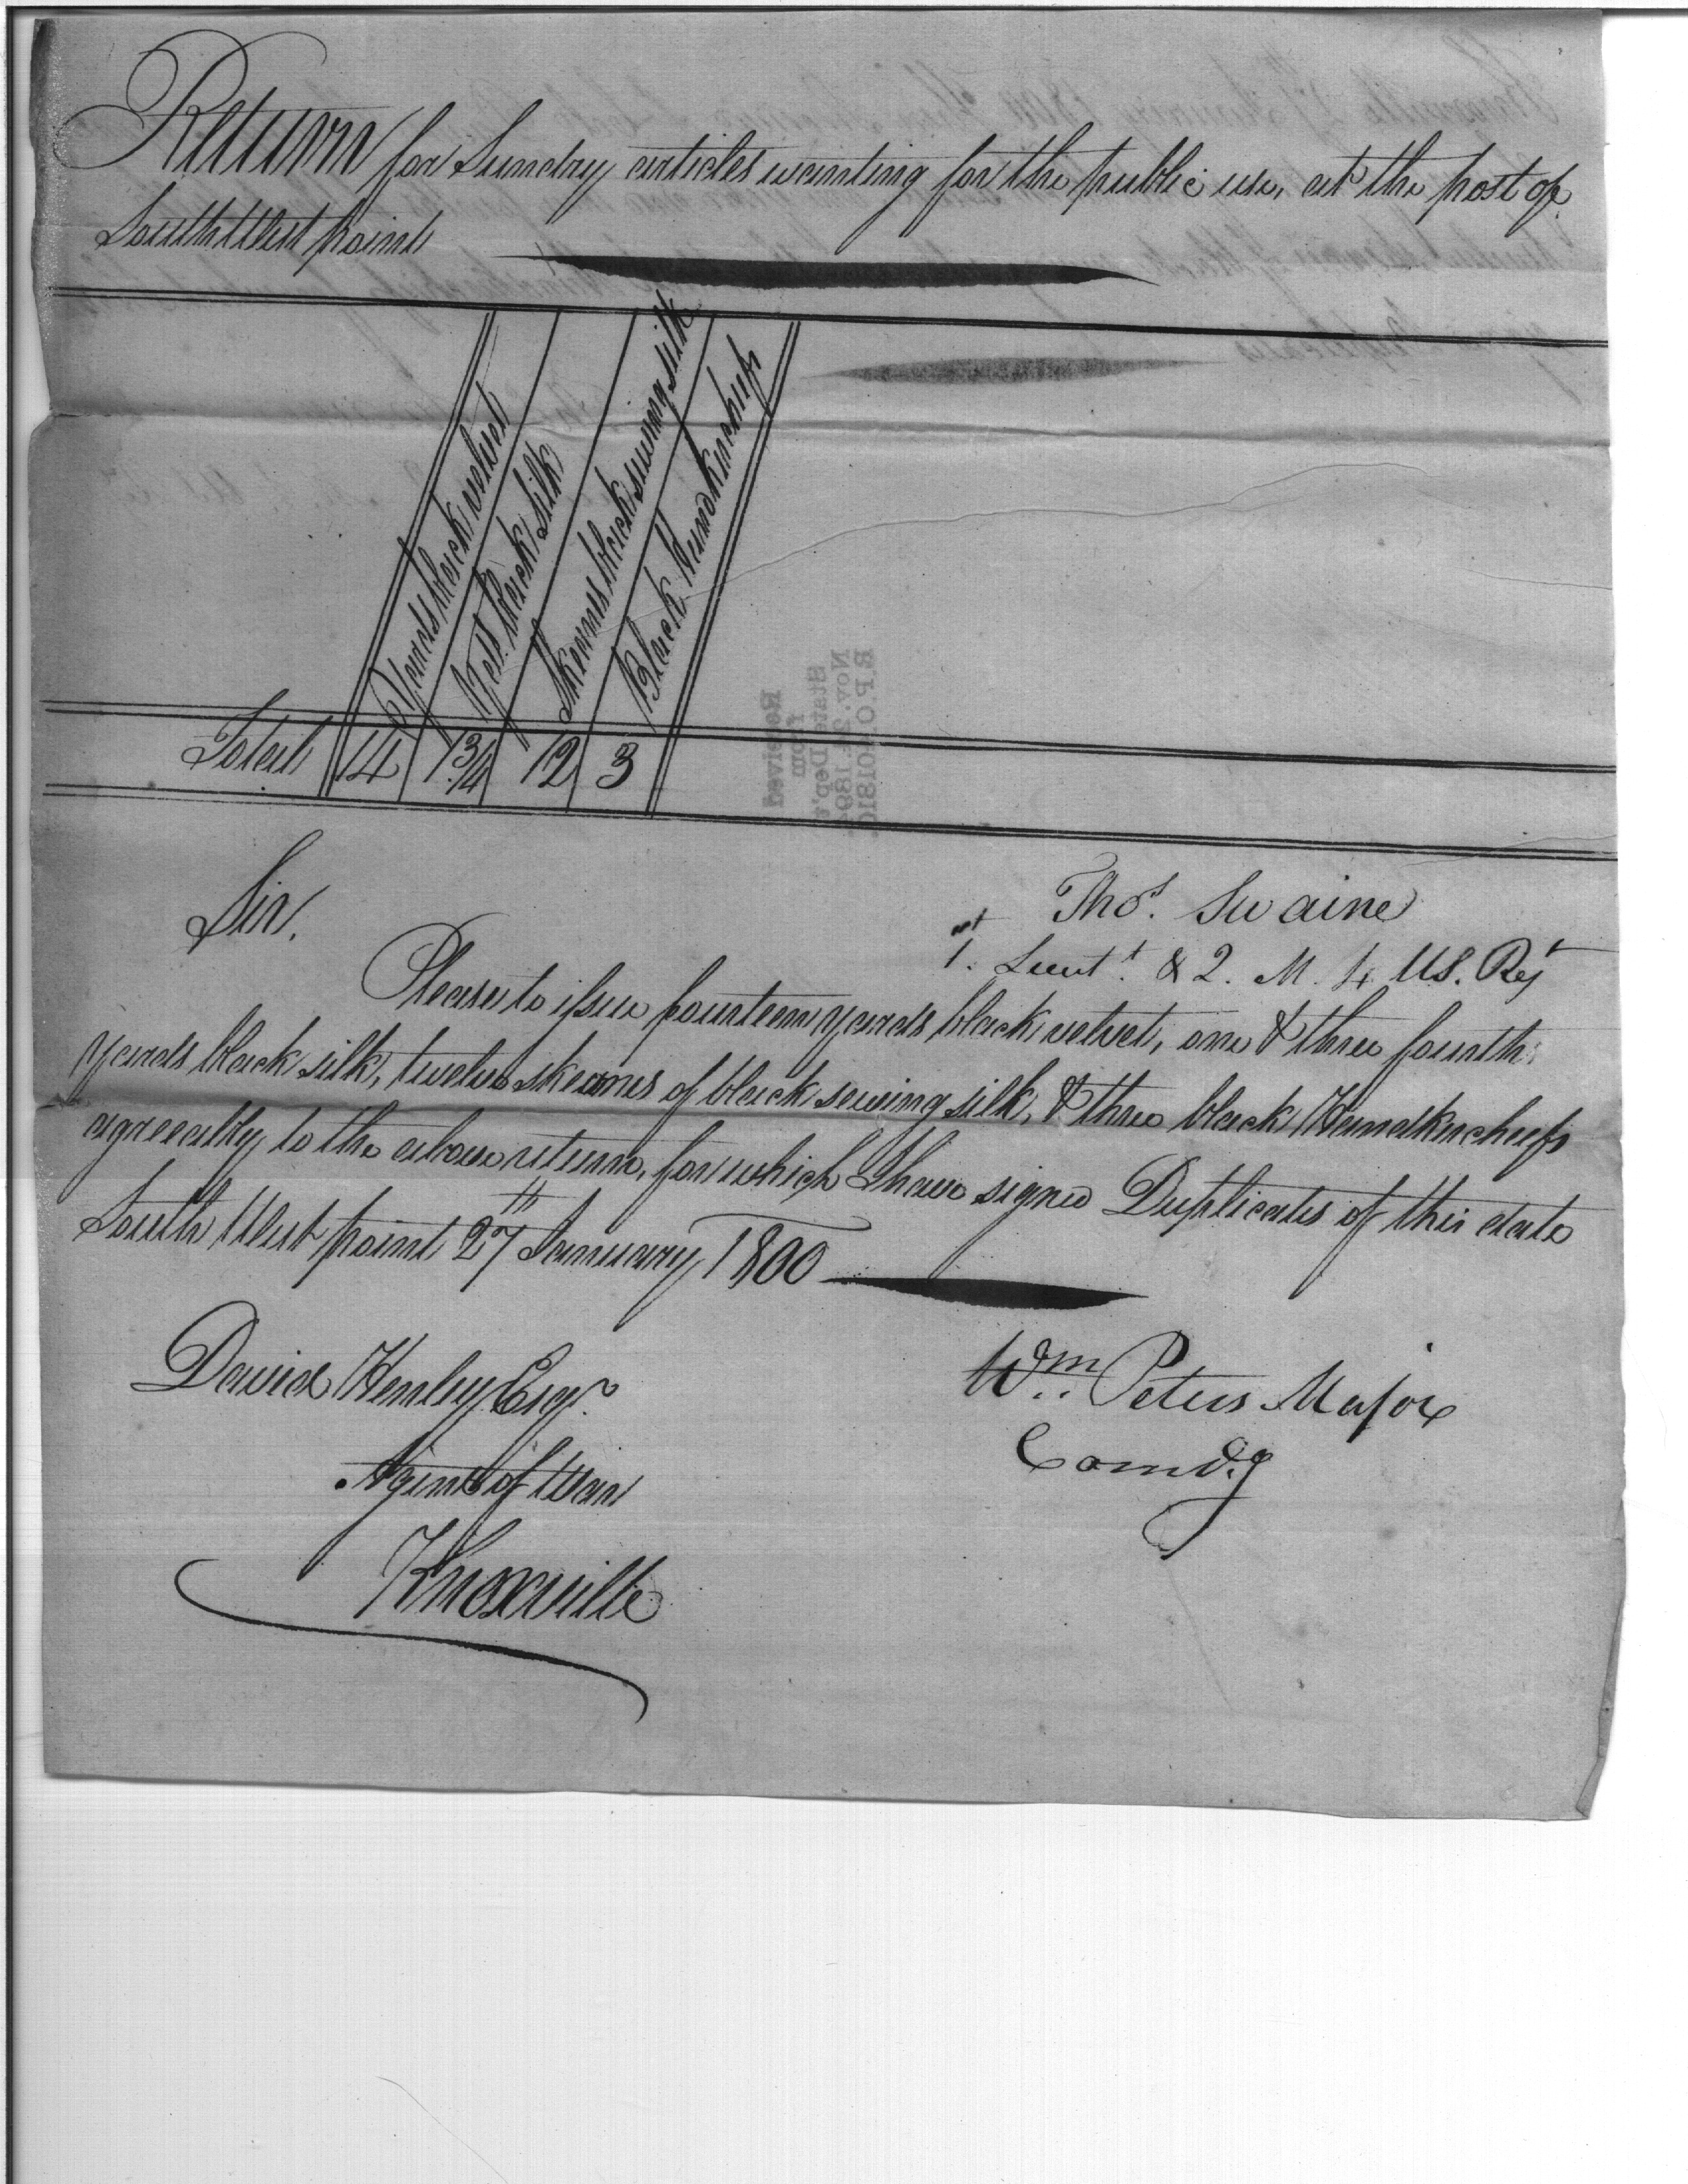 Return for Sundry articles wanting for the public use, at the post of
South West point
Yards black velvet
Yds. black Silk
Skeanes black sewing silk
Black Handkerchiefs
Total 14 1 3/4 12 3
Thos. Swaine
1st. Lieut. & Q. M. 4 US. Regt
Sir,
Please to issue fourteen yards black velvet, one & three fourth
yards black silk, twelve skeanes of black sewing silk, & three black Handkerchiefs
agreeably to the above return, for which I have signed Duplicates of this date
South West point 27th January 1800
David Henley Esqr.
Agent of War
Knoxville
Wm. Peters Major
Comdg
Received
from
State Dep't
Nov. 2
R.P.O.